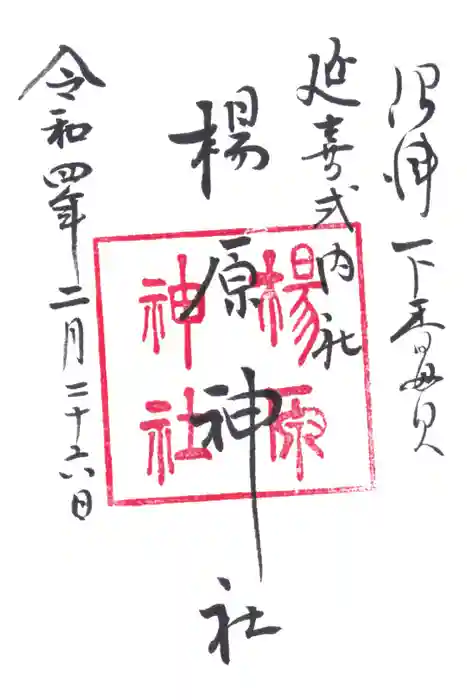 沼津 下香貫
延喜式内社
楊原神社
楊原
神社
令和四年二月二十六日